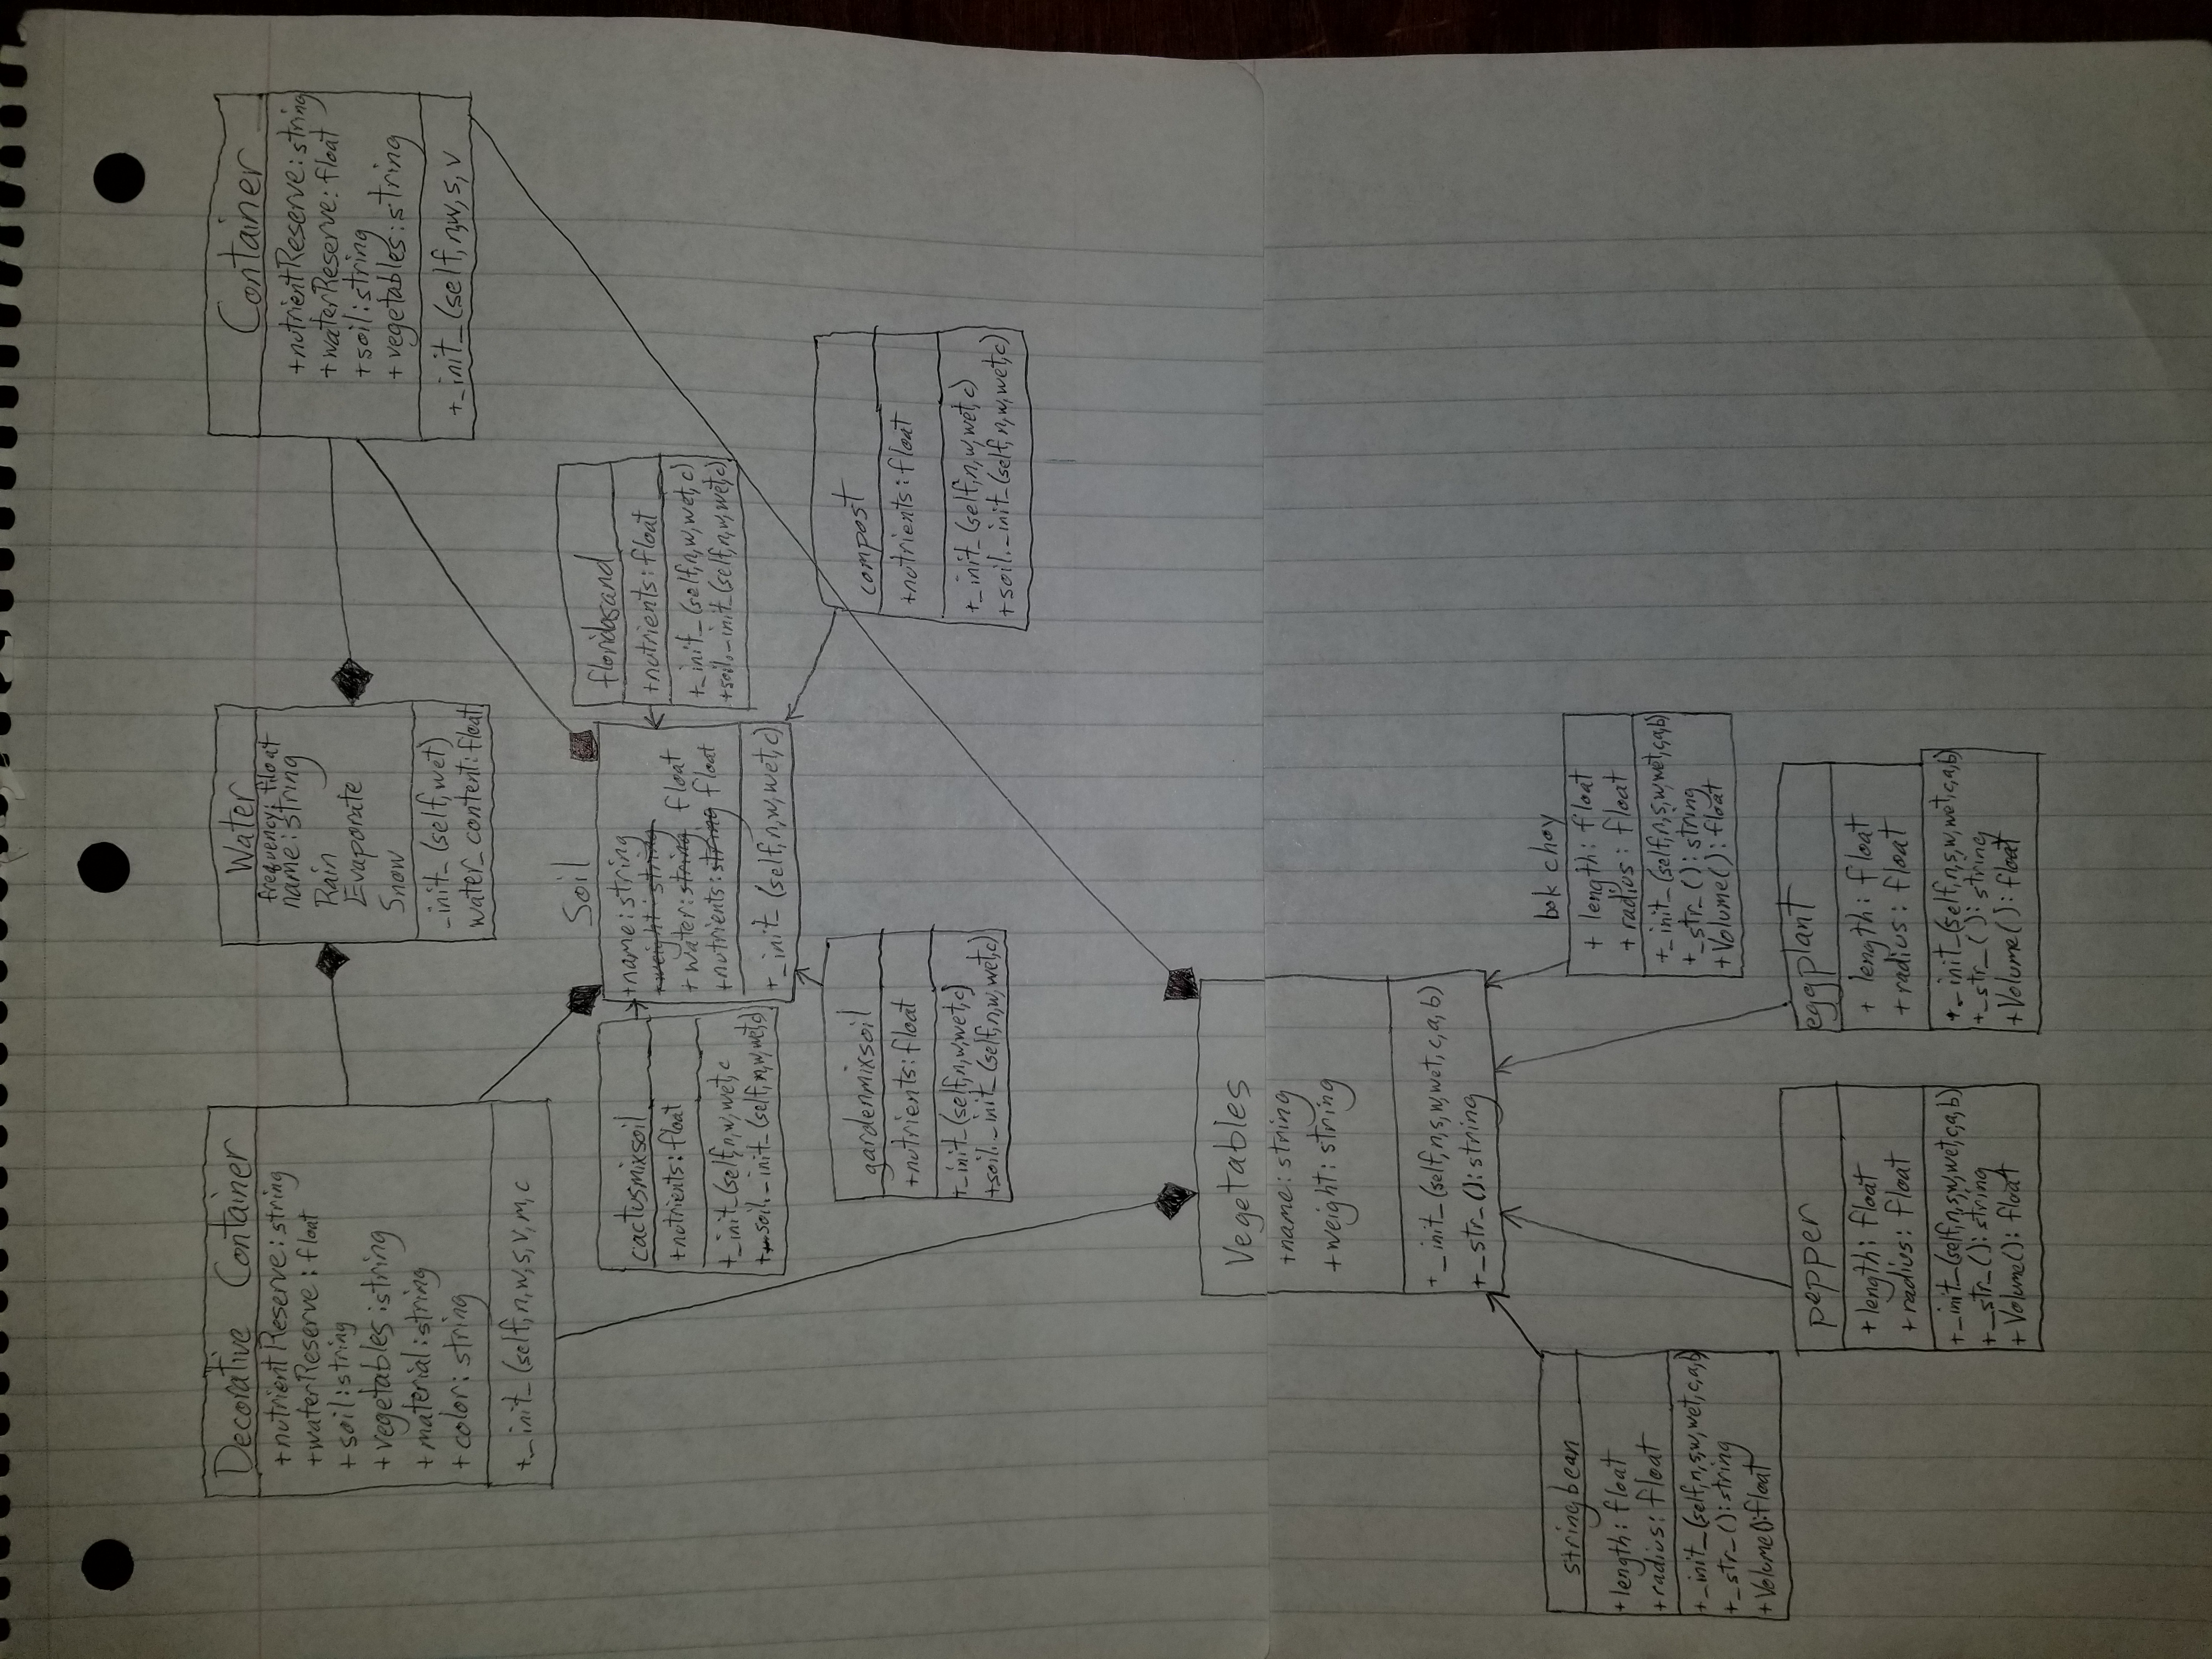 Decorative Container
+nutrientReserve: string
+waterReserve: float
+soil: string
+vegetables: string
+material: string
+color: string
+_init_(self,n,w,s,v,m,c
Water
frequency: float
name: string
Rain
Evaporate
Snow
_init_(self,wet)
water_content: float
Container
+nutrientReserve: string
+waterReserve: float
+soil: string
+vegetables: string
+_init_(self,n,w,s,v
Soil
+name: string
+weight: string
+water: string float
+nutrients: string float
+_init_(self,n,w,wet,c)
cactusmixsoil
+nutrients: float
+_init_(self,n,w,wet,c
+soil._init_(self,n,w,wet,c)
floridasand
+nutrients: float
+_init_(self,n,w,wet,c)
+soil._init_(self,n,w,wet,c)
gardenmixsoil
+nutrients: float
+_init_(self,n,w,wet,c)
+soil._init_(self,n,w,wet,c)
compost
+nutrients: float
+_init_(self,n,w,wet,c)
+soil._init_(self,n,w,wet,c)
Vegetables
+name: string
+weight: string
+_init_(self,n,s,w,wet,c,a,b)
+_str_(): string
stringbean
+length: float
+radius: float
+_init_(self,n,s,w,wet,c,a,b)
+_str_(): string
+Volume(): float
bok choy
+ length: float
+ radius: float
+_init_(self,n,s,w,wet,c,a,b)
+_str_(): string
+Volume(): float
pepper
+ length: float
+ radius: float
+_init_(self,n,s,w,wet,c,a,b)
+_str_(): string
+ Volume(): float
eggplant
+ length: float
+ radius: float
+_init_(self,n,s,w,wet,c,a,b)
+_str_(): string
+Volume(): float